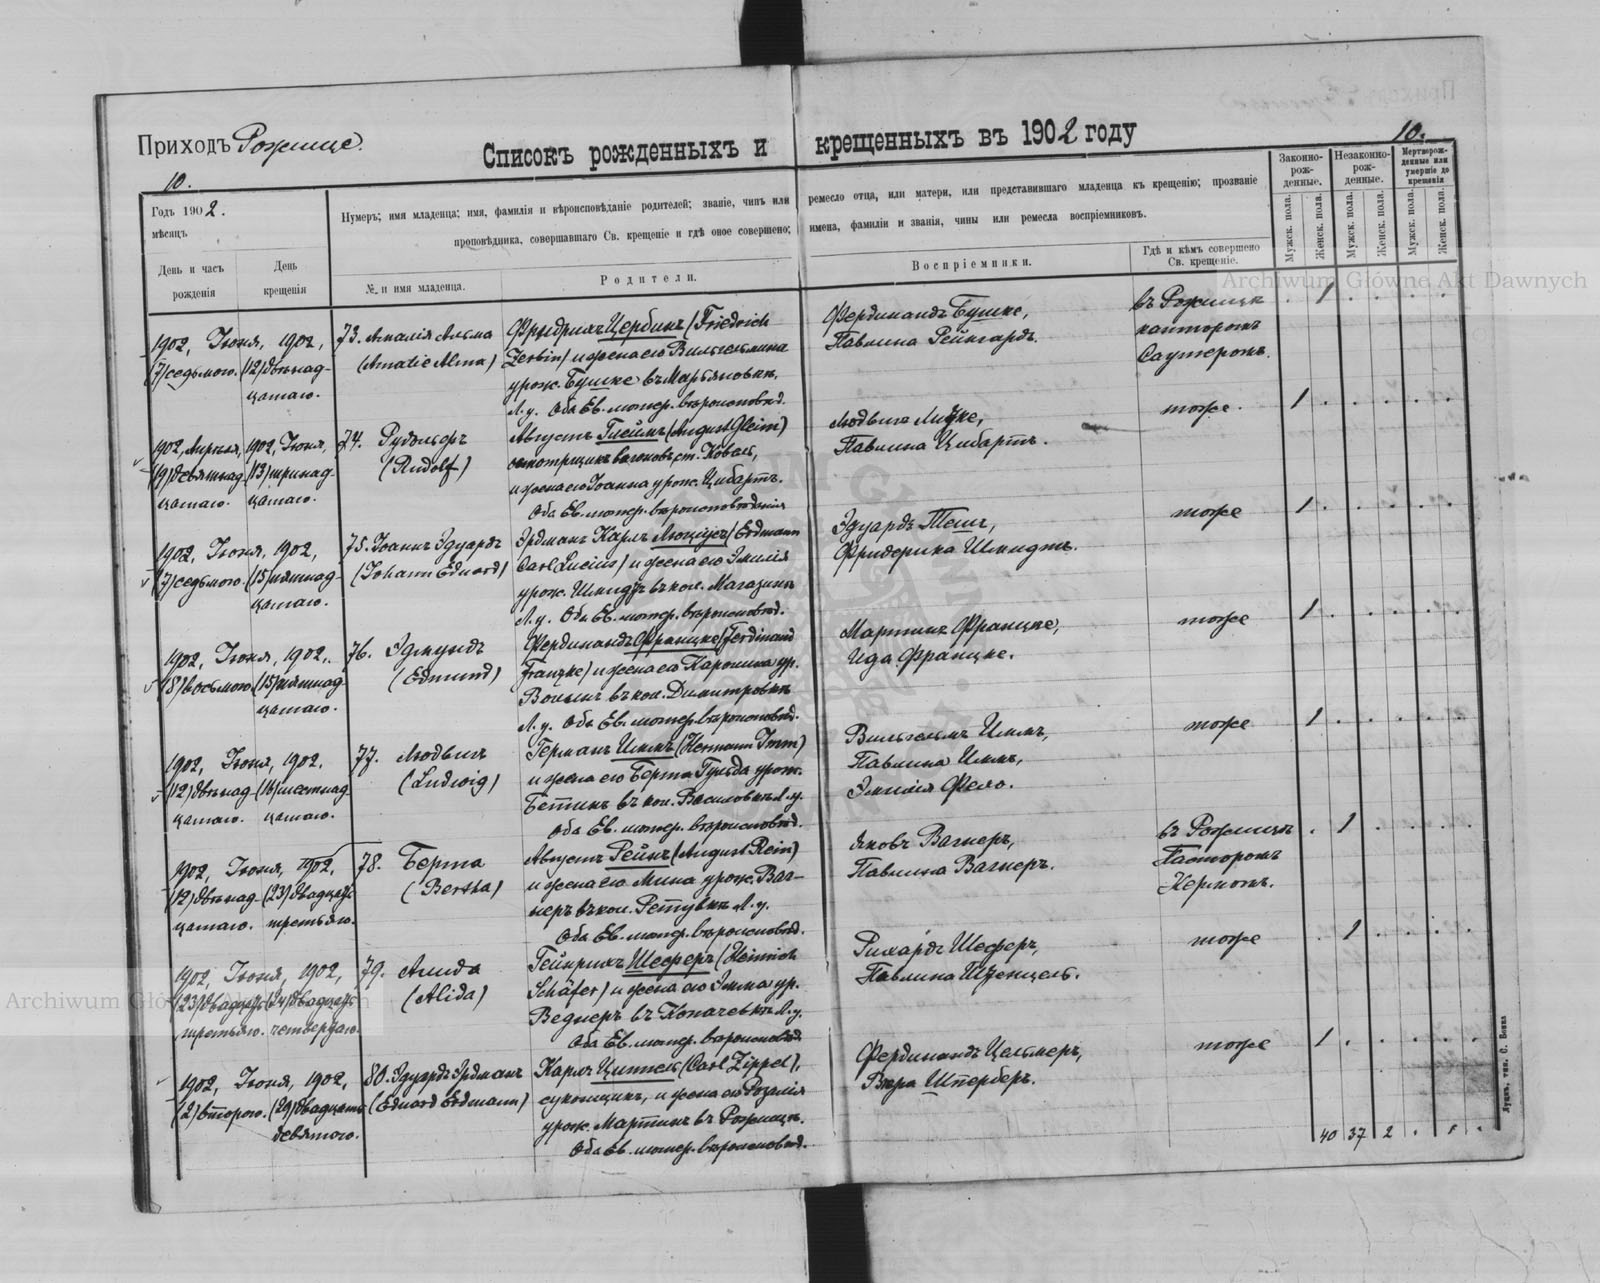 Приходъ Рожище.
Списокъ рожденныхъ и крещенныхъ въ 1902 году
10.
10.
Годъ 1902.
мѣсяцъ
День и часъ рожденія
День крещенія
Нумеръ; имя младенца; имя, фамилія и вѣроисповѣданіе родителей; званіе, чинъ или ремесло отца, или матери, или представившаго младенца къ крещенію; прозваніе
проповѣдника, совершавшаго Св. крещеніе и гдѣ оное совершено; имена, фамиліи и званія, чины или ремесла воспріемниковъ.
№ и имя младенца.
Родители.
Воспріемники.
Гдѣ и кѣмъ совершено Св. крещеніе.
Законно-рож-денные.
Незаконно-рож-денные.
Мертворож-денные или умершіе до крещенія
Мужск. пола.
Женск. пола.
Мужск. пола.
Женск. пола.
Мужск. пола.
Женск. пола.
1902, Іюня, 1902,
(7) седьмого. (12) двѣнад-
цатаго.
73. Амалія Альма
(Amalie Alma)
Фридрихъ Цербинъ (Friedrich
Zerbin) и жена его Вильгельмина
урож. Бушке въ Марьяновкѣ,
Л. у. Оба Ев. лютер. вѣроисповѣд.
Фердинандъ Бушке,
Павлина Рейнгардъ.
въ Рожищѣ
пасторомъ
Саутеромъ.
1
1902, Апрѣля, 1902, Іюня,
(19) девятнад- (13) тринад-
цатаго. цатаго.
74. Рудольфъ
(Rudolf)
Августъ Глеймъ (August Gleim)
осмотрщикъ вагоновъ, ст. Ковель,
и жена его Іоанна урож. Цибартъ.
Оба Ев. лютер. вѣроисповѣданія
Людвигъ Личке,
Павлина Цибартъ.
тоже.
1
1902, Іюня, 1902,
(7) седьмого. (15) пятнад-
цатаго.
75. Іоаннъ Эдуардъ
(Johann Eduard)
Эрдманъ Карлъ Люціусъ (Erdmann
Carl Lucius) и жена его Эмилія
урож. Шмидтъ въ кол. Магазинъ
Л. у. Оба Ев. лютер. вѣроисповѣд.
Эдуардъ Тешъ,
Фридерика Шмидтъ.
тоже
1
1902, Іюня, 1902,
(8) восьмого (15) пятнад-
цатаго.
76. Эдмундъ
(Edmund)
Фердинандъ Францке (Ferdinand
Franzke) и жена его Каролина ур.
Вольшъ въ кол. Димитровкѣ
Л. у. Оба Ев. лютер. вѣроисповѣд.
Мартинъ Францке,
Ида Францке.
тоже
1
1902, Іюня, 1902,
(12) двѣнад- (16) шестнад-
цатаго. цатаго.
77. Людвигъ
(Ludwig)
Германъ Иммъ (Hermann Imm)
и жена его Берта Гульда урож.
Беттинъ въ кол. Василовкѣ Л. у.
Оба Ев. лютер. вѣроисповѣд.
Вильгельмъ Иммъ,
Павлина Иммъ,
Эмилія Фело.
тоже
1
1902, Іюня, 1902,
(12) двѣнад- (23) двадцать
цатаго. третьяго.
78. Берта
(Bertha)
Августъ Рейнъ (August Rein)
и жена его Мина урож.Ваг-
неръ въ кол. Петувкѣ Л. у.
Оба Ев. лютер. вѣроисповѣд.
Яковъ Вагнеръ,
Павлина Вагнеръ.
въ Рожищѣ
Пасторомъ
Кермомъ.
1
1902, Іюня, 1902,
(23) двадцать (24) двадцать
третьяго. четвертаго.
79. Алида
(Alida)
Гейнрихъ Шеферъ (Heinrich
Schäfer) и жена его Эмма ур.
Веднеръ въ Копачевкѣ Л. у.
Оба Ев. лютер. вѣроисповѣд.
Рихардъ Шеферъ,
Павлина Штенцель.
тоже
1
1902, Іюня, 1902,
(2) второго. (29) двадцать
девятого.
80. Эдуардъ Эрдманъ
(Eduard Erdmann)
Карлъ Циппель (Carl Zippel),
суконщикъ, и жена его Розалія
урож. Мартинъ въ Рожищѣ.
Оба Ев. лютер. вѣроисповѣд.
Фердинандъ Цельмеръ,
Вѣра Штерберъ.
тоже
1
40 37 2
Луцкъ, тип. С. Бонка
Archiwum Główne Akt Dawnych
Archiwum Główne Akt Dawnych